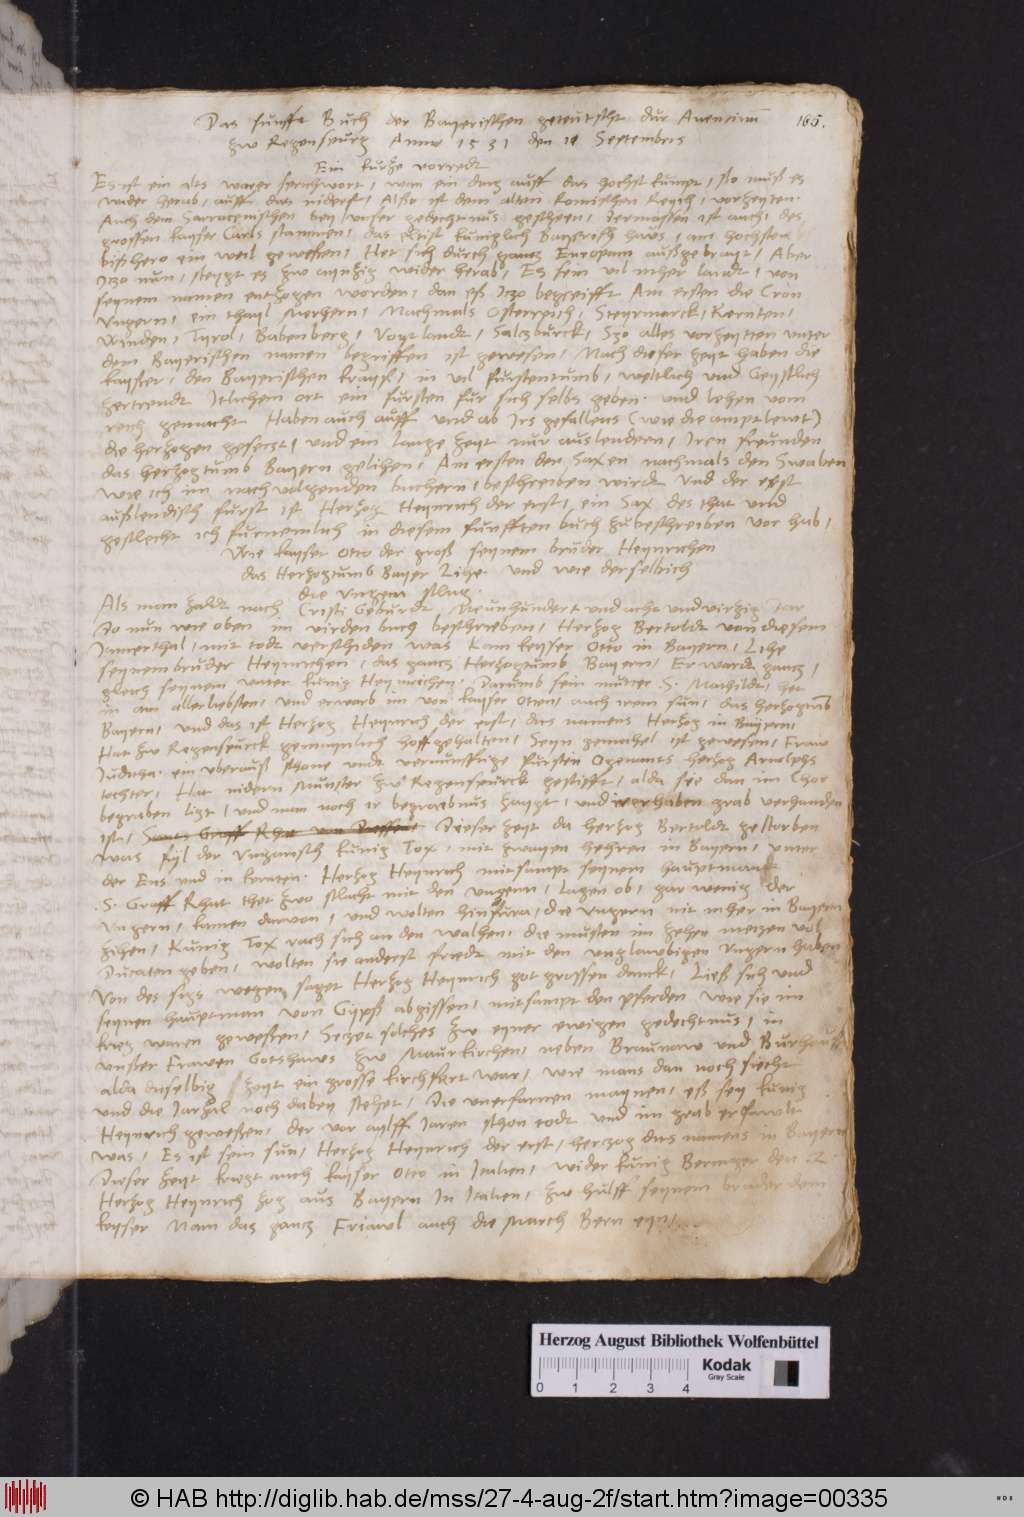 Das funfft Buch der Bayerischen geteutscht dur Auentinum
165.
zw Regenspurg Anno 1531 den 11 Septembris
Ein kurtze vorredt
Es ist ein alts warer sprichwort, wan ein ding auff das hochst kumpt, so muß es
wider herab, auffs das niderst, Alßo ist dem alten Romischen Reych, vorzeyten.
Auch dem Sarracenischen bey unser gedechtnus gescheen, dermassen ist auch, des
grossen kayser Carls stammen, das Erst kuniglich Bayerisch haus, am hochsten
bißhero ein weil gewessen, Het sich durch gantz Europam außgebrayt, Aber
Itzo nun, steygt es zw aynzig wider herab, Es sein vil mher landt, von
seynem namen entzogen worden, dan eß Itzo begreifft Am ersten die Cron
Ungern, ein thayl Merhern, Nachmals Osterreich, Steyrmarck, Kernten,
Winden, Tyrol, Babenberg, Voytlandt, Saltzburck, Szo alles vorzeytten unter
dem Bayerischen namen begriffen ist gewesen, Nach dieser zeyt haben die
kayser, den Bayerischen krayß, in vil furstentumb, weltlich und Geystlich
zertrendt Itlichem ort ein fursten fur sich selbs geben. und lehen vom
reich gemacht Haben auch auff und ab Irs gefallens (wie die amptlewt)
die hertzogen gesetzt, und ein lange zeyt nur auslendern, Iren freunden
das hertzogtumb Bayern gelihen, Am ersten den Saxen nachmals den Swaben
wie ich im nachvolgenden buchern, beschreiben wirdt und der erst
außlendisch furst ist Hertzog Heynrich der erst, ein Sax des that und
geslecht ich furnemlich in diesem funfften buch zubeschreiben vor hab,
Wie kayser Otto der groß seynem bruder Heynrichen
das Hertzogtumb Bayer Lihe. und wie derselbich
die ungern slug.
Als man zaldt nach Cristi Geburdt Neunhundert und acht und virzig Jar
Do nun wie oben im virden buch beschrieben, Hertzog Bertoldt von diesem
Jamerthal, mit todt verschiden was kam keyser Otto in Bayern, Lihe
seynem bruder Heynrichen, das gantz Hertzogtumb Bayern, Er wardt gantz,
gleich seynem vater kunig Heynrichen. Darumb sein mutter S. Mathildt, het
in am allerliebsten, und erwarb im von kayser Otten, auch irem sun, das hertzogtumb
Bayern, und das ist Hertzog Heynrich der erst, dits namens Hertzog in Bayern,
Hat zw Regenspurck gemaynlich hoff gehalten, Seyn gemahel ist gewesen, Fraw
Juditha. ein uberauß schone und vernunfftige fürstin Ogenants hertzog Arnolphs
tochter, Hat nidern Munster zw Regenspurck gestifft, alda sie dan im Chor
begraben ligt, und man noch ir begrebnus zaygt, und irerhaben grab verhanden
ist, Dieser zeyt da hertzog Bertoldt gestorben
was fyl der Ungarisch kunig Tox, mit zwayen hehren in Bayern, unter
der Ens und in kernten. Hertzog Heynrich mitsampt seynem hauptmann
S. Graff Rhat thet zwo slacht mit den ungern, lagen ob, gar wenig der
ungern, kamen darvon, und wolten hinfura, die ungern nit mher in Bayern
zihen, Kunig Tox rach sich an den walhen, die musten im zehen metzen vol
Ducaten geben, wolten sie anderst fridt mit den unglaubigen Ungern haben
Von des sigs wegen saget Hertzog Heynrich got grossen danck, Ließ sich und
seynen hauptman von Gypß abgissen, mitsampt den pferden wie sie im
krieg waren gewessen, Setzet solches zw eyner ewigen gedechtnus, in
unßer Frawen Gotshaws zw Maurkirchen, neben Braunaw und Burchaussen
alda dieselbig zeyt ein grosse kirchfart war, wie mans dan noch siecht
und die Jarzal noch dabey stehet, Die unerfarnen maynen, eß sey kunig
Heynrich geweßen, der vor aylff Jaren schon todt und im grab erfawlt
was, Es ist sein sun, Hertzog Heynrich der erst, hertzog dits namens in Bayern
Dieser zeyt kriegt auch kayser Otto in Italien, wider kunig Beringer den 2.
Hertzog Heynrich zog aus Bayern In Italien, zw hulff seynem bruder dem
keyser Nam das gantz Friawl auch die March Bern eyn,
Herzog August Bibliothek Wolfenbüttel
Kodak
Gray Scale
0 1 2 3 4
© HAB http://diglib.hab.de/mss/27-4-aug-2f/start.htm?image=00335